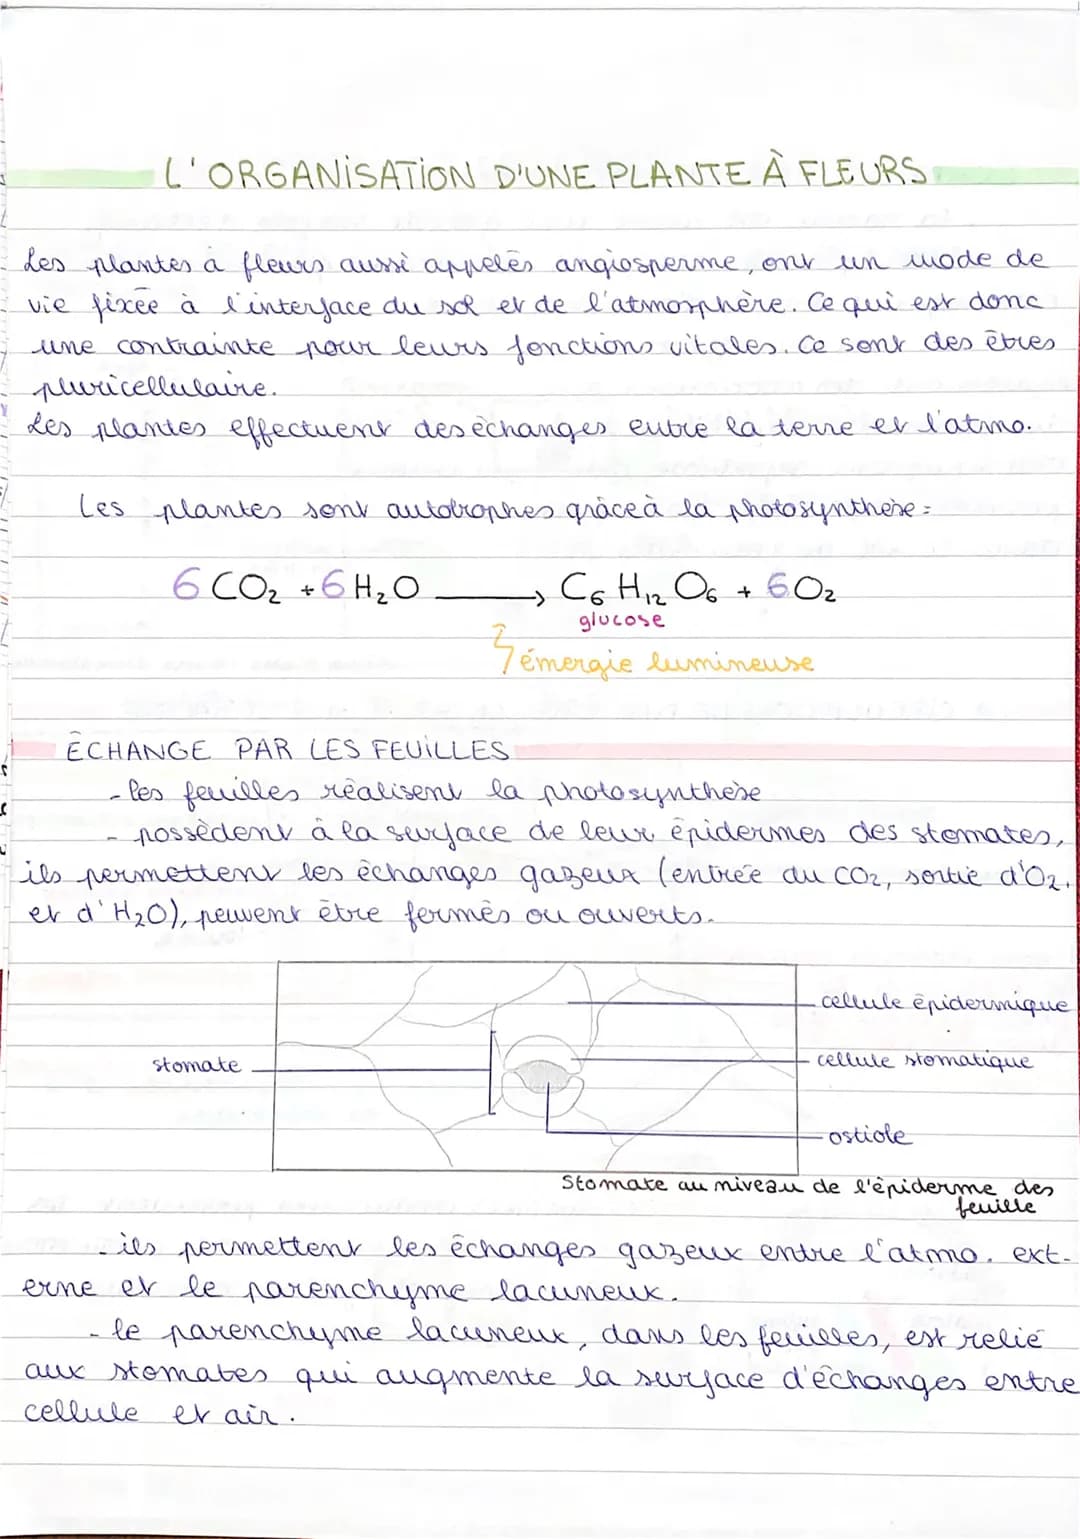 L'ORGANISATION D'UNE PLANTE À FLEURS
Les plantes à fleurs aussi appelés angiosperme, ont un mode de
vie fixée à l'interface du sol et de l'atmosphère. Ce qui est donc
une contrainte pour leurs fonctions vitales. Ce sont des êtres
pluricellulaire.
Les plantes effectuent des échanges entre la terre et l'atmo.
Les plantes sont autotrophes grâce à la photosynthèse :
6 CO₂ + 6 H₂O → C₆ H₁₂ O₆ + 6 O₂
glucose
émergie lumineuse
ÉCHANGE PAR LES FEUILLES
- les feuilles réalisent la photosynthèse
- possèdent à la surface de leur épidermes des stomates,
ils permettent les échanges gazeux (entrée du CO₂, sortie d'O₂,
et d'H₂O), peuvent être fermés ou ouverts.
cellule épidermique
stomate
cellule stomatique
ostiole
Stomate au niveau de l'épiderme des
feuille
- ils permettent les échanges gazeux entre l'atmo. ext-
erne et le parenchyme lacuneux.
- le parenchyme lacuneux, dans les feuilles, est relié
aux stomates qui augmente la surface d'échanges entre
cellule et air.